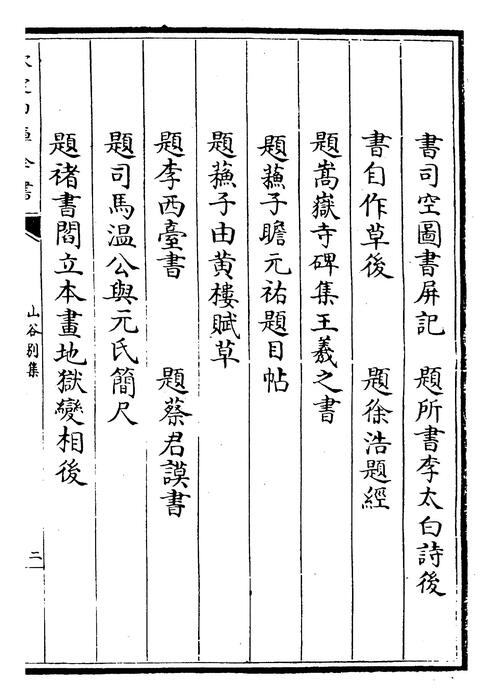 書司空圖書屏記　題所書李太白詩後
書自作草後　題徐浩題經
題嵩嶽寺碑集王羲之書
題蘓子瞻元祐題目帖
題蘓子由黄樓賦草
題李西臺書　題蔡君謨書
題司馬温公與元氏簡尺
題禇書閻立本畫地獄變相後
欽定四庫全書
山谷别集
二